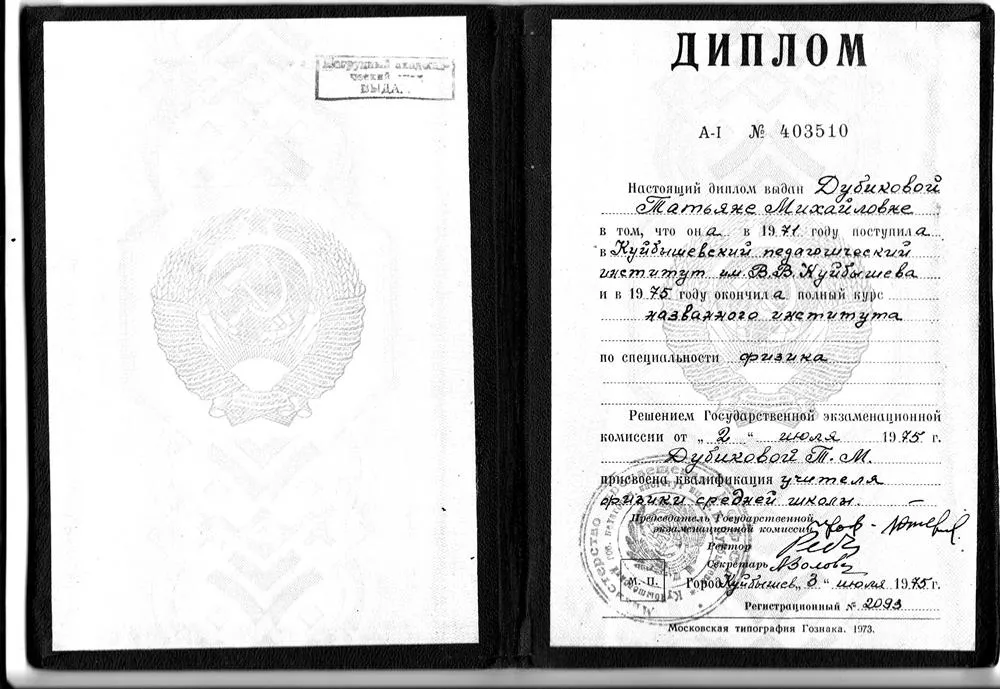 Нагрудный академи-
ческий знак
ВЫДА
ДИПЛОМ
А-I № 403510
Настоящий диплом выдан Дубиковой
Татьяне Михайловне
в том, что она в 1971 году поступила
в Куйбышевский педагогический
институт им. В.В. Куйбышева
и в 1975 году окончила полный курс
названного института
по специальности физика
Решением Государственной экзаменационной
комиссии от „2“ июля 1975 г.
Дубиковой Т. М.
присвоена квалификация учителя
физики средней школы.
Председатель Государственной
экзаменационной комиссии
Ректор
Секретарь
М. П. Город Куйбышев, 3 “ июля 1975 г.
Регистрационный № 2093
Московская типография Гознака. 1973.